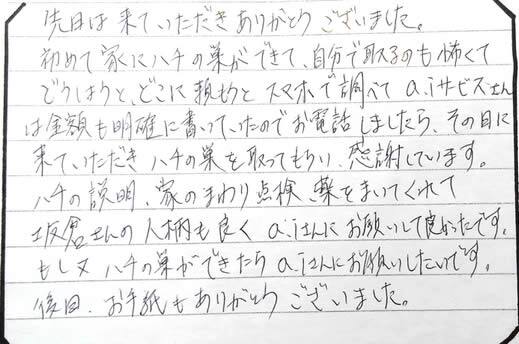 先日は来ていただきありがとうございました。
初めて家にハチの巣ができて、自分で取るのも怖くて
どうしようと、どこに頼もうと スマホで調べて a.iサービスさん
は金額も明確に書いていたのでお電話しましたら、その日に
来ていただき ハチの巣を取ってもらい、感謝しています。
ハチの説明、家のまわり点検、薬をまいてくれて
坂倉さんの人柄も良く a.iさんにお願いして良かったです。
もし又 ハチの巣ができたら a.iさんにお願いしたいです。
後日、お手紙もありがとうございました。